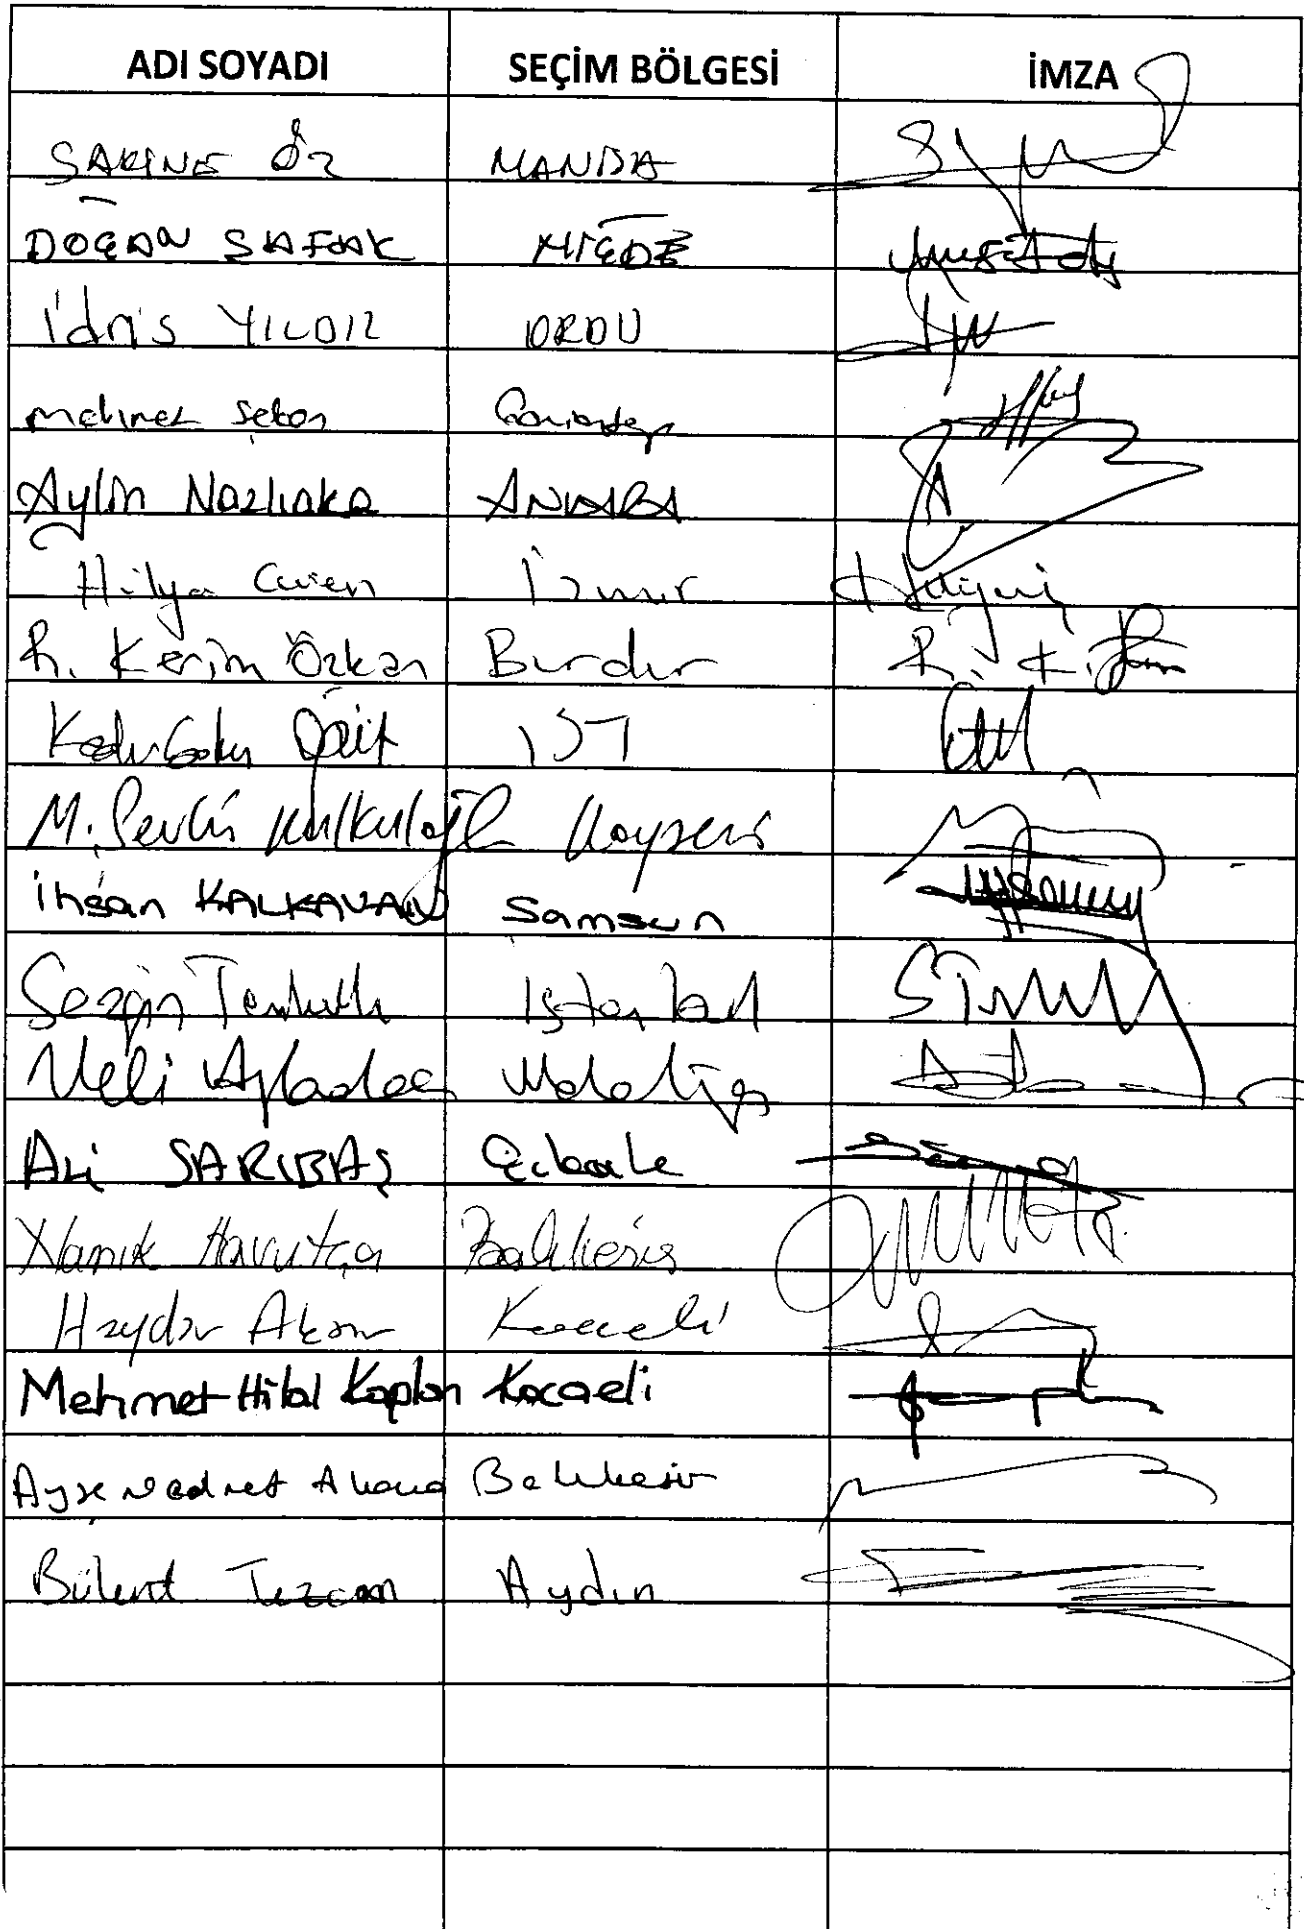 ADI SOYADI SEÇİM BÖLGESİ İMZA
SAKINE ÖZ MANİSA
DOĞAN ŞAFAK NİĞDE
İdris YILDIZ ORDU
Mehmet Şeker Gaziantep
Aylin Nazlıaka ANKARA
Hülya Güven İzmir
R. Kerim Özkan Burdur
Kadir Gökmen Öğüt İST
M. Şevki Kulkuloğlu Kayseri
İhsan KALKAVAN Samsun
Sezgin Tanrıkulu İstanbul
Veli Ağbaba Malatya
Ali SARIBAŞ Ç.kale
Namık Havutça Balıkesir
Haydar Akar Kocaeli
Mehmet Hilal Kaplan Kocaeli
Ayşe Nedret Akova Balıkesir
Bülent Tezcan Aydın